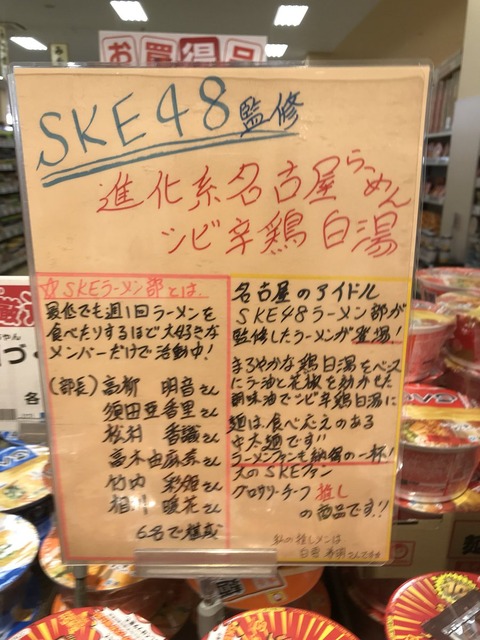 お買得品
SKE48監修
進化系名古屋らーめん
シビ辛鶏白湯
SKEラーメン部とは、
最低でも週1回ラーメンを
食べたりするほど大好きな
メンバーだけで活動中!
(部長)高柳 明音さん
須田亜香里さん
松村 香織さん
高木由麻奈さん
竹内 彩姫さん
相川 暖花さん
6名で構成
名古屋のアイドル
SKE48ラーメン部が
監修したラーメンが登場!
まろやかな鶏白湯をベース
にラー油と花椒を効かせた
調味油でシビ辛鶏白湯に
麺は食べ応えのある
中太麺です!!
ラーメンファンも納得の一杯!
大のSKEファン
グロサリーチーフ推し
の商品です!!
私の推しメンは